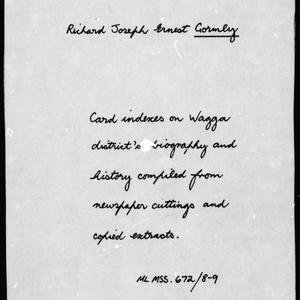 Richard Joseph Ernest Gormly
Card indexes on Wagga
district's biography and
history compiled from
newspaper cuttings and
copied extracts.
ML MSS. 672/8-9